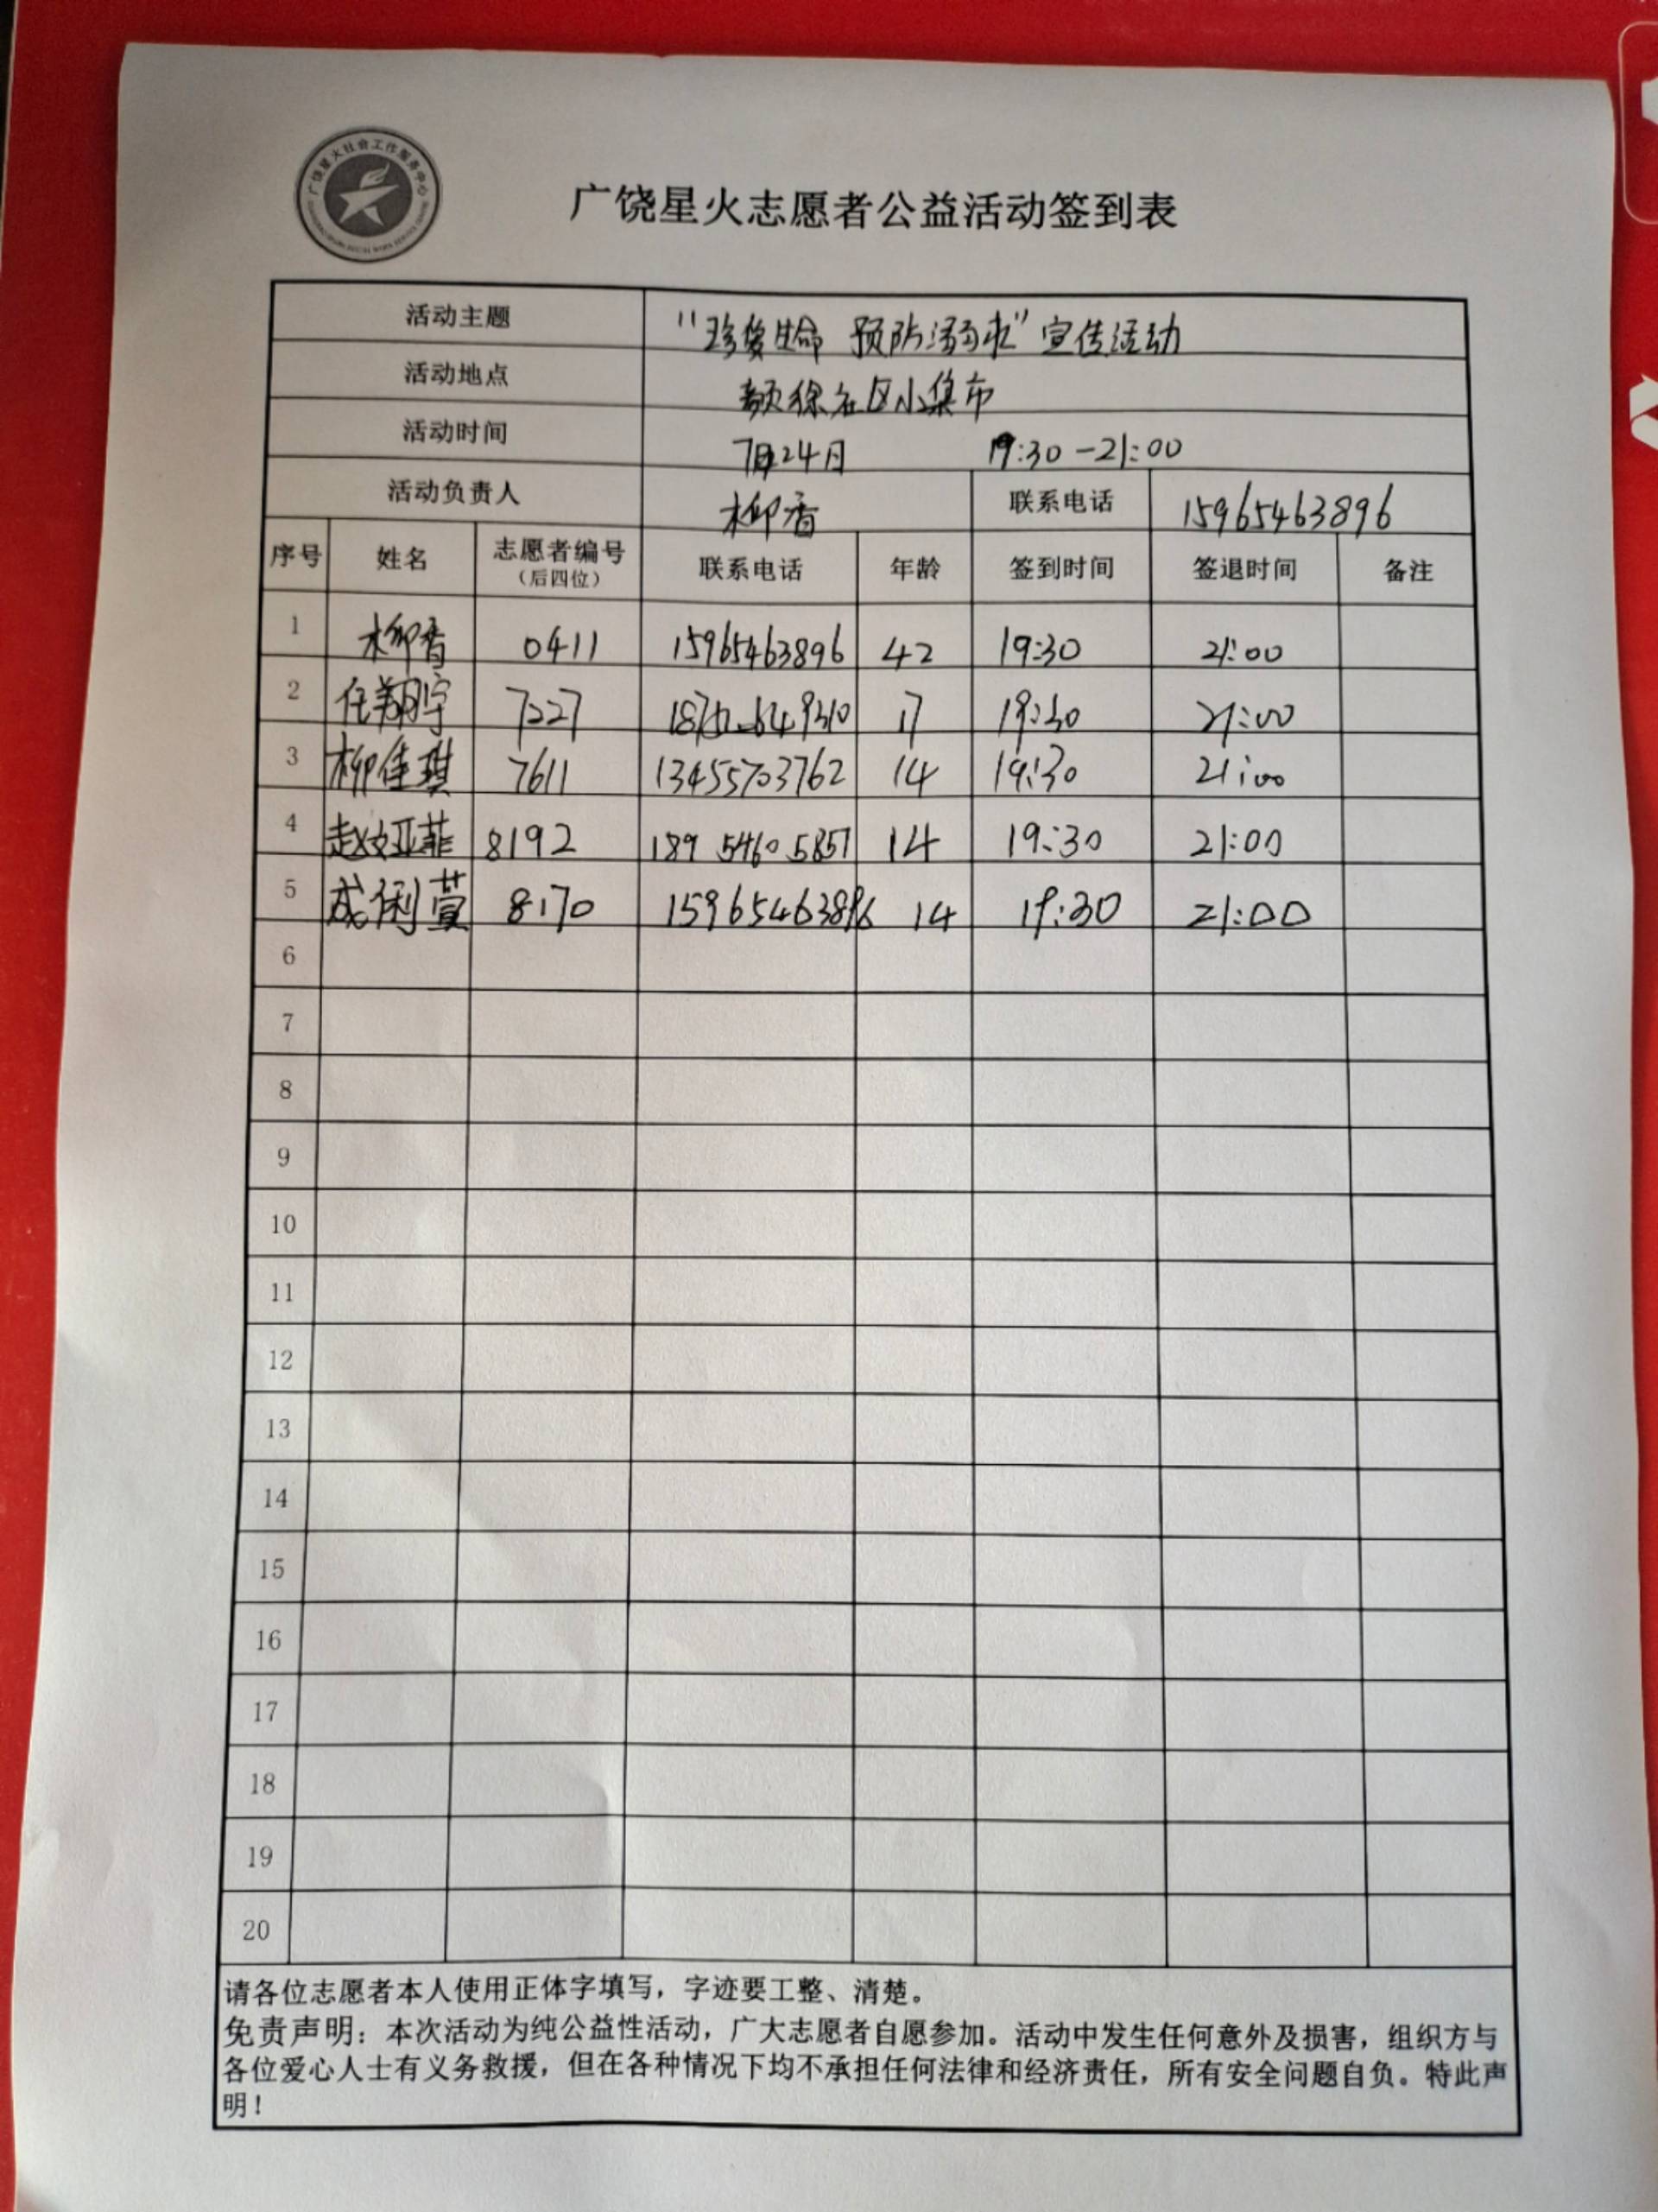 广饶星火社会工作服务中心
广饶星火志愿者公益活动签到表
活动主题 "珍爱生命 预防溺水"宣传活动
活动地点 颜徐社区小集市
活动时间 7月24日 19:30-21:00
活动负责人 柳香 联系电话 15965463896
序号 姓名 志愿者编号（后四位） 联系电话 年龄 签到时间 签退时间 备注
1 柳香 0411 15965463896 42 19:30 21:00
2 任翔宇 7227 17 19:30 21:00
3 柳佳琪 7611 13455703762 14 19:30 21:00
4 赵亚菲 8192 189 5460 5857 14 19:30 21:00
5 成俐萱 8170 15965463896 14 19:30 21:00
6
7
8
9
10
11
12
13
14
15
16
17
18
19
20
请各位志愿者本人使用正体字填写，字迹要工整、清楚。
免责声明：本次活动为纯公益性活动，广大志愿者自愿参加。活动中发生任何意外及损害，组织方与
各位爱心人士有义务救援，但在各种情况下均不承担任何法律和经济责任，所有安全问题自负。特此声
明！